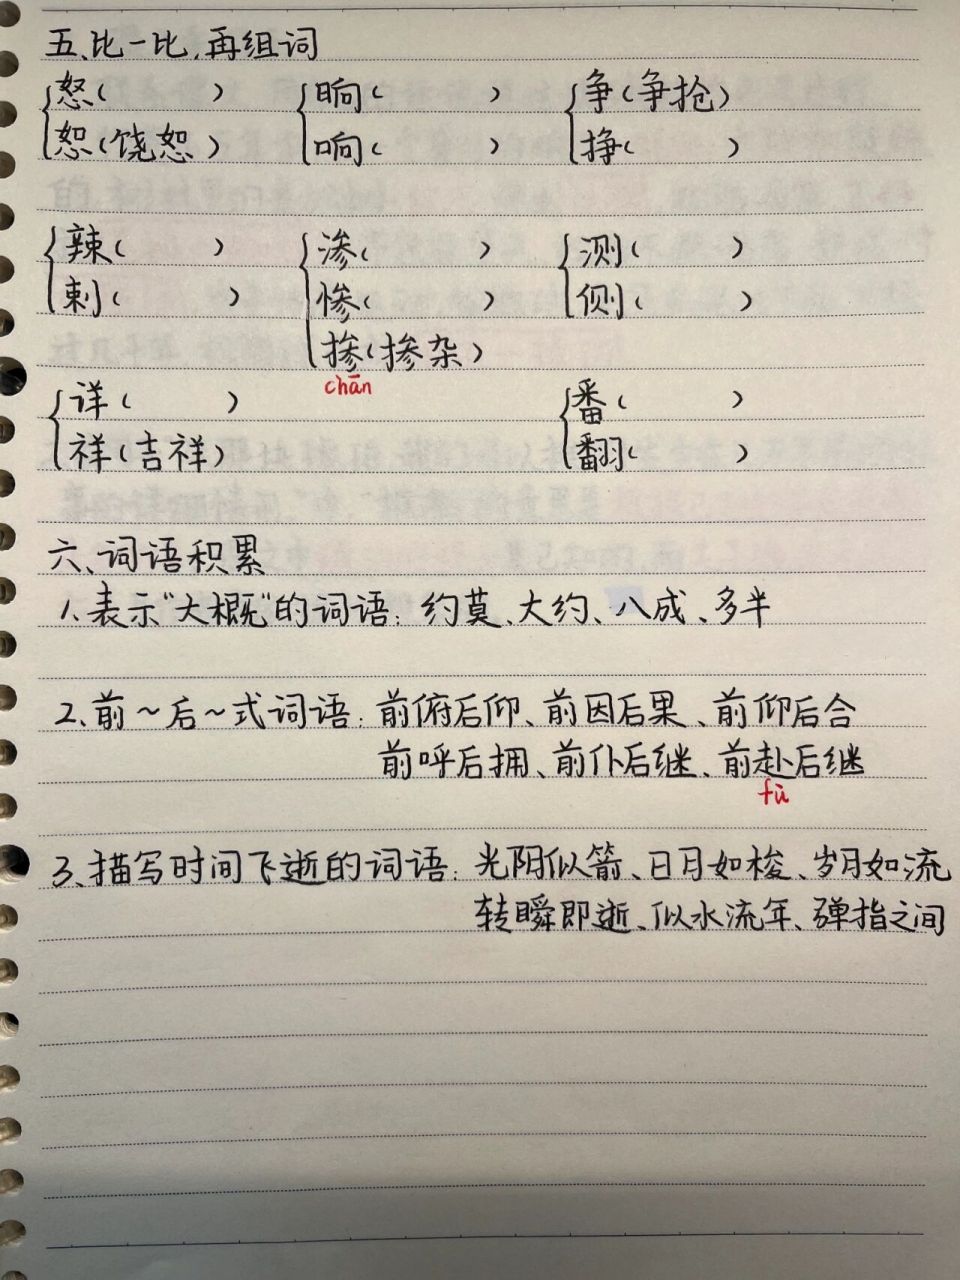 五、比一比,再组词
怒( ) 晌( ) 争(争抢)
恕(饶恕) 响( ) 挣( )
辣( ) 渗( ) 测( )
刺( ) 惨( ) 侧( )
掺(掺杂)
chān
详( ) 番( )
祥(吉祥) 翻( )
六、词语积累
1、表示“大概”的词语:约莫、大约、八成、多半
2、前~后~式词语:前俯后仰、前因后果、前仰后合
前呼后拥、前仆后继、前赴后继
fù
3、描写时间飞逝的词语:光阴似箭、日月如梭、岁月如流
转瞬即逝、似水流年、弹指之间